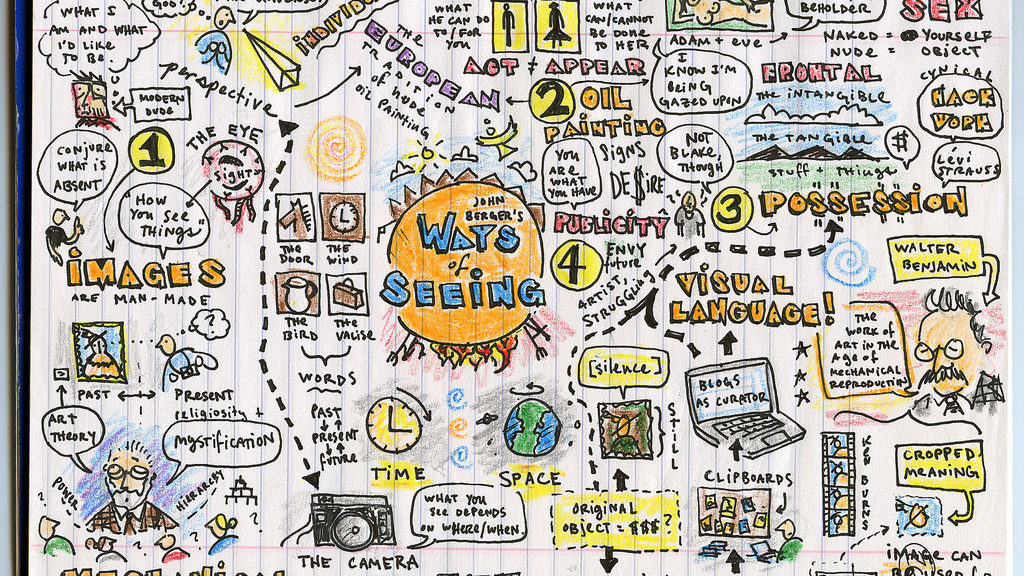 WHAT I
AM AND WHAT
I'D LIKE
TO BE
perspective
MODERN
DUDE
1
THE EYE
SIGHT
CONJURE
WHAT IS
ABSENT
HOW
YOU SEE
THINGS"
IMAGES
ARE MAN-MADE
PAST
PRESENT
religiosity +
MYSTIFICATION
ART
THEORY
POWER
HIERARCHY
THE
EUROPEAN
TRADITION
of nude
oil painting
WHAT
HE CAN DO
TO/FOR
YOU
WHAT
CAN/CANNOT
BE DONE
TO HER
ACT ≠ APPEAR
2 OIL
PAINTING
SIGNS
YOU
ARE
WHAT
YOU HAVE
DE$IRE
PUBLICITY
4
ENVY
future
ARTIST,
STRUGGLING
JOHN
BERGER'S
WAYS
of
SEEING
THE
DOOR
THE
WIND
THE
BIRD
THE
VALISE
WORDS
PAST
PRESENT
future
TIME
SPACE
WHAT YOU
SEE DEPENDS
ON WHERE/WHEN
THE CAMERA
BEHOLDER
SEX
ADAM + EVE
NAKED = YOURSELF
NUDE = OBJECT
I
KNOW I'M
BEING
GAZED UPON
FRONTAL
THE INTANGIBLE
THE TANGIBLE
STUFF + THINGS
$
CYNICAL
HACK
WORK
LÉVI
STRAUSS
NOT
BLAKE,
THOUGH
3 POSSESSION
WALTER
BENJAMIN
VISUAL
LANGUAGE!
THE
WORK OF
ART IN THE
AGE OF
MECHANICAL
REPRODUCTION
[silence]
STILL
BLOGS
AS CURATOR
CLIPBOARDS
ORIGINAL
OBJECT = $$$ ?
KEN BURNS
CROPPED
MEANING
IMAGE CAN